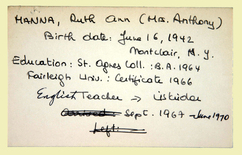 MANNA, Ruth Ann (Mrs. Anthony)
Birth date: June 16, 1942
Montclair, N.Y.
Education: St. Agnes Coll.: B.A. 1964
Fairleigh Univ.: Certificate 1966
English Teacher →
Arrived Sept. 1967 - June 1970
Left: